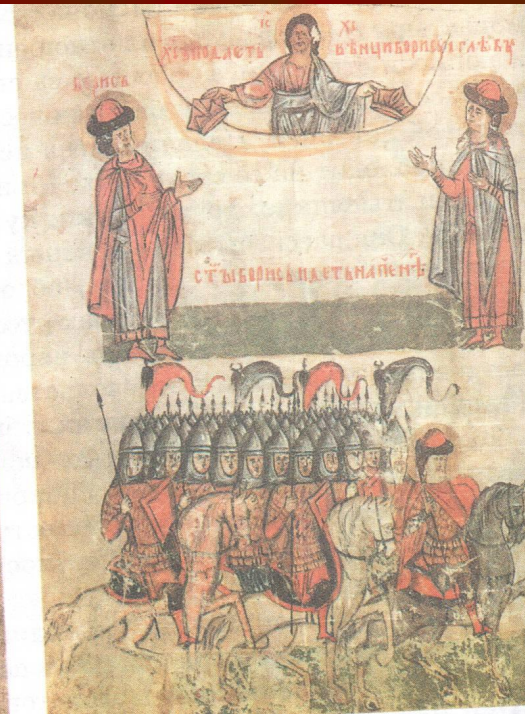 ІС ХС
ХС ПОДАСТЬ ВѢНЦИ БОРИСУ І ГЛѢБУ
БОРИСЬ
СТЫ БОРИСЬ ИДЕТЬ НА ПЕЧЕНѢ